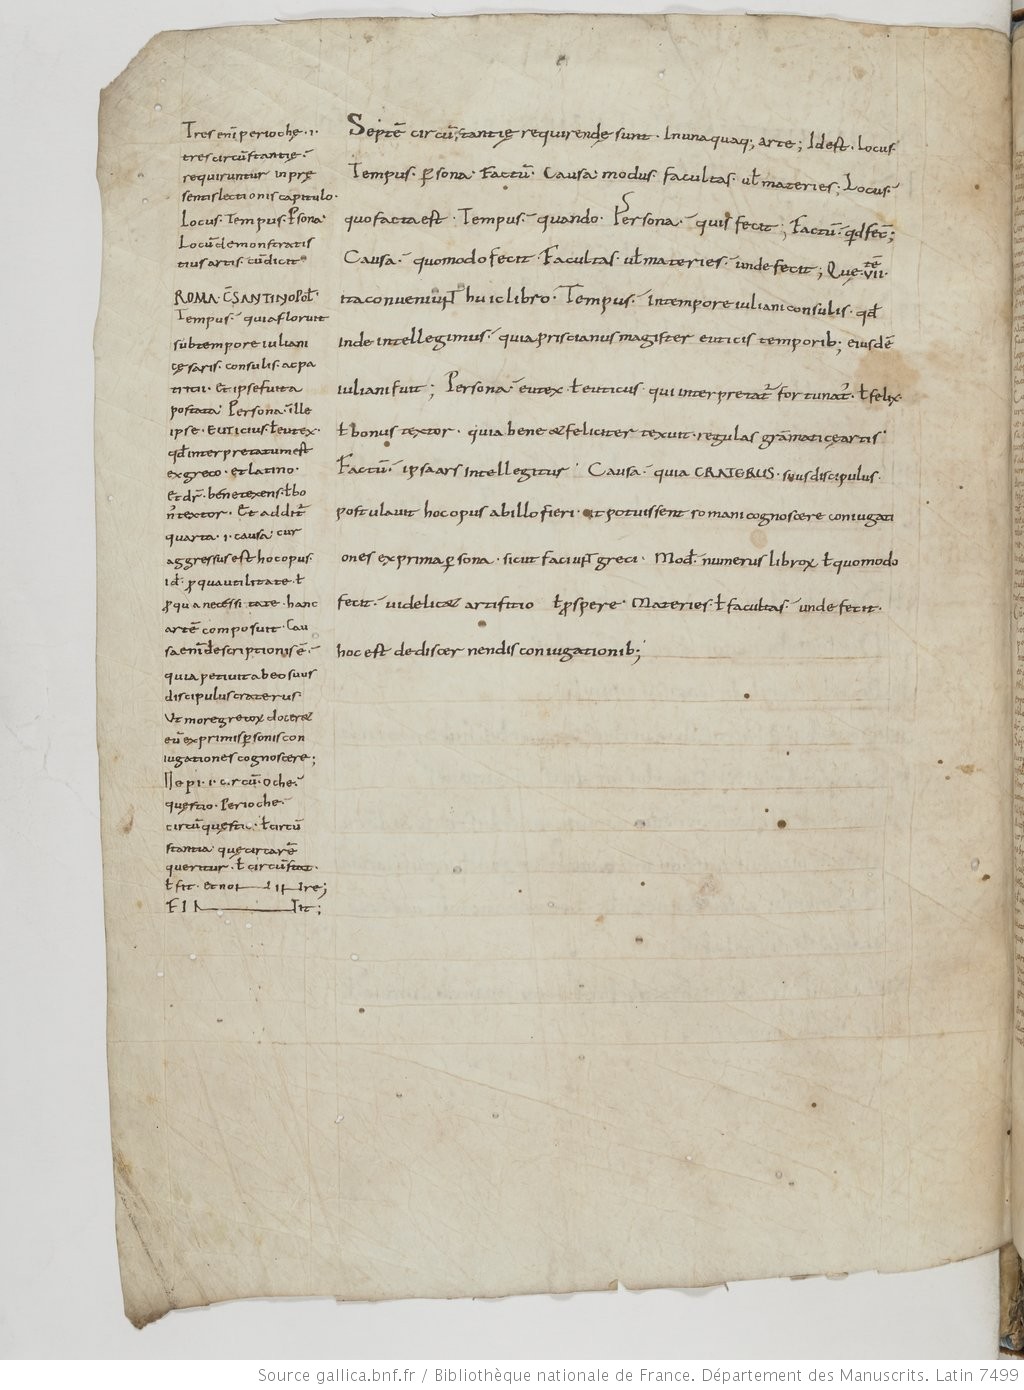 Tres enī perioche · i ·
tres circūstantię ·
requiruntur in prę
sentis lectionis capitulo ·
Locus · Tempus · Psona
Locū demonstratis
tius artis · cū dicit
ROMA · CSANTINOPOL ·
Tempus · quia floruit
sub tempore iuliani
cęsaris · consulis ac pa
tricii · et ipse fuit a
postata · Persona · ille
ipse · Euticius · ł eutex ·
qđ interpretatum est
ex greco · et latino ·
et dr̄ · bene texens · ł bo
n᾽ textor · Et additr̄
quarta · i · causa · cur
aggressus est hoc opus ·
id · ꝓ qua utilitate · ł
ꝓ qua necessitate · hanc
artē composuit · Cau
sa enī descriptionis ē ·
quia petivit ab eo suus
discipulus craterus
Ut more grecoꝝ docer&
eū ex primis psonis con
iugationes cognoscere ;
Πepi · i · circū · oche ·
quęstio · Perioche ·
circū quęstio · ł circū
stantia quę circa rē
queritur · ł circūstat ·
ł fit · et no re ;
FIN it ;
Septē circūstantię requirendę sunt · In una quaq; arte ; Id est · Locus ·
Tempus · psona · Factū · Causa · modus · facultas · uł materies ; Locus ·
quo facta est · Tempus · quando · Persona · quis fecit ; Factū · qđ fec̄ ;
Causa · quomodo fecit · Facultas · uł materies · unde fecit ; Quę tē · vii ·
ita conveniunt huic libro · Tempus · In tempore iuliani consulis · qđ
inde intellegimus · quia priscianus magister euticis temporib; eiusdē
iuliani fuit ; Persona · eutex · ł euticus · qui interpretatr̄ fortunatr̄ · ł felix ·
ł bonus textor · quia bene & feliciter texuit · regulas grāmaticę artis ·
Factū · ipsa ars intellegitur · Causa · quia CRATERUS · suus discipulus ·
postulavit hoc opus ab illo fieri · ut potuissent romani cognoscere coniugati
ones ex prima psona · sicut faciunt greci · Mod᾽ · numerus libroꝝ ł quomodo
fecit · videlic& artifitio ł ꝓspere · Materies · ł facultas · unde fecit ·
hoc est de discernendis coniugationib;
Source gallica.bnf.fr / Bibliothèque nationale de France. Département des Manuscrits. Latin 7499